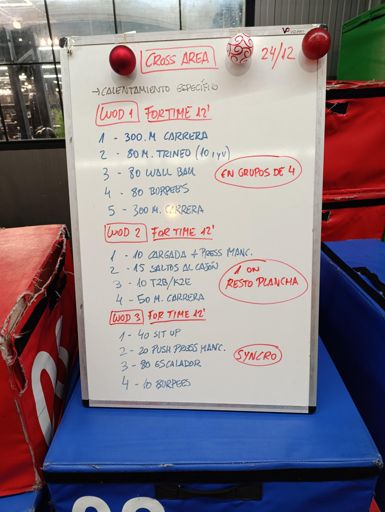 CROSS AREA
24/12
→CALENTAMIENTO ESPECÍFICO
WOD 1 FOR TIME 12'
1 - 300 M. CARRERA
2 - 80 M. TRINEO (10 I+V)
3 - 80 WALL BALL
4 - 80 BURPEES
5 - 300 M. CARRERA
EN GRUPOS DE 4
WOD 2 FOR TIME 12'
1 - 10 CARGADA + PRESS MANC.
2 - 15 SALTOS AL CAJÓN
3 - 10 T2B/K2E
4 - 50 M. CARRERA
1 ON
RESTO PLANCHA
WOD 3 FOR TIME 12'
1 - 40 SIT UP
2 - 20 PUSH PRESS MANC.
3 - 80 ESCALADOR
4 - 10 BURPEES
SYNCRO